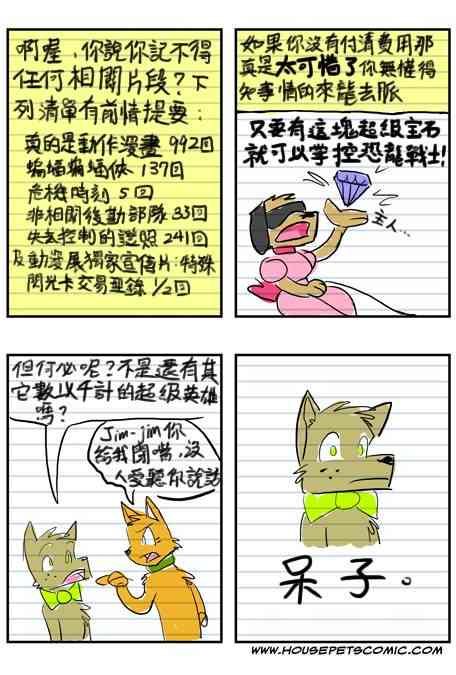 啊喔，你說你記不得
任何相關片段？下
列清單有前情提要：
真的是動作漫畫 992回
蝙蝠蝙蝠俠 137回
危機時刻 5回
非相關後勤部隊 33回
失去控制的證照 241回
及動漫展獨家宣信片：特殊
閃光卡交易亞錄 1/2回
如果你沒有付清費用那
真是太可惜了你無權得
知事情的來龍去脈
只要有這塊超級宝石
就可以掌控恐龍戰士!
主人...
但何必呢？不是還有其
它數以千計的超級英雄
嗎？
Jim-jim你
給我閉嘴，沒
人愛聽你說話
呆子。
WWW.HOUSEPETSCOMIC.COM